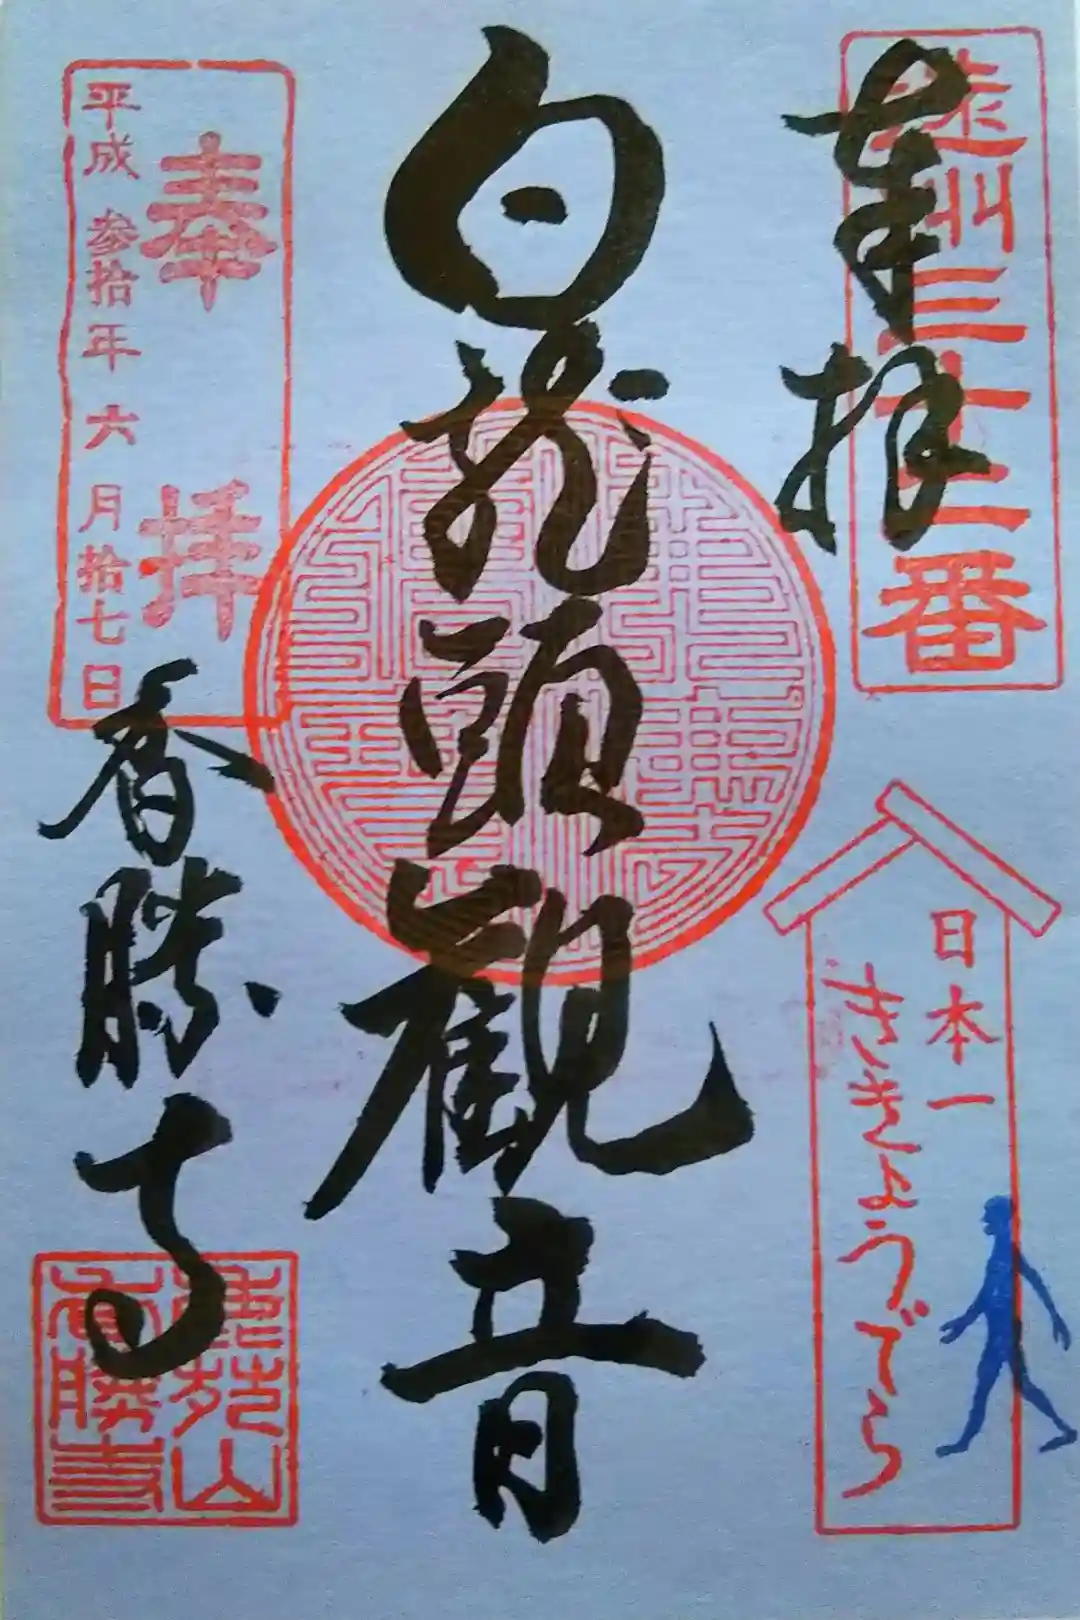 遠州三十三番
奉拝
日本一
ききょうでら
白龍頭観音
奉拝
平成参拾年六月拾七日
香勝寺
香勝寺